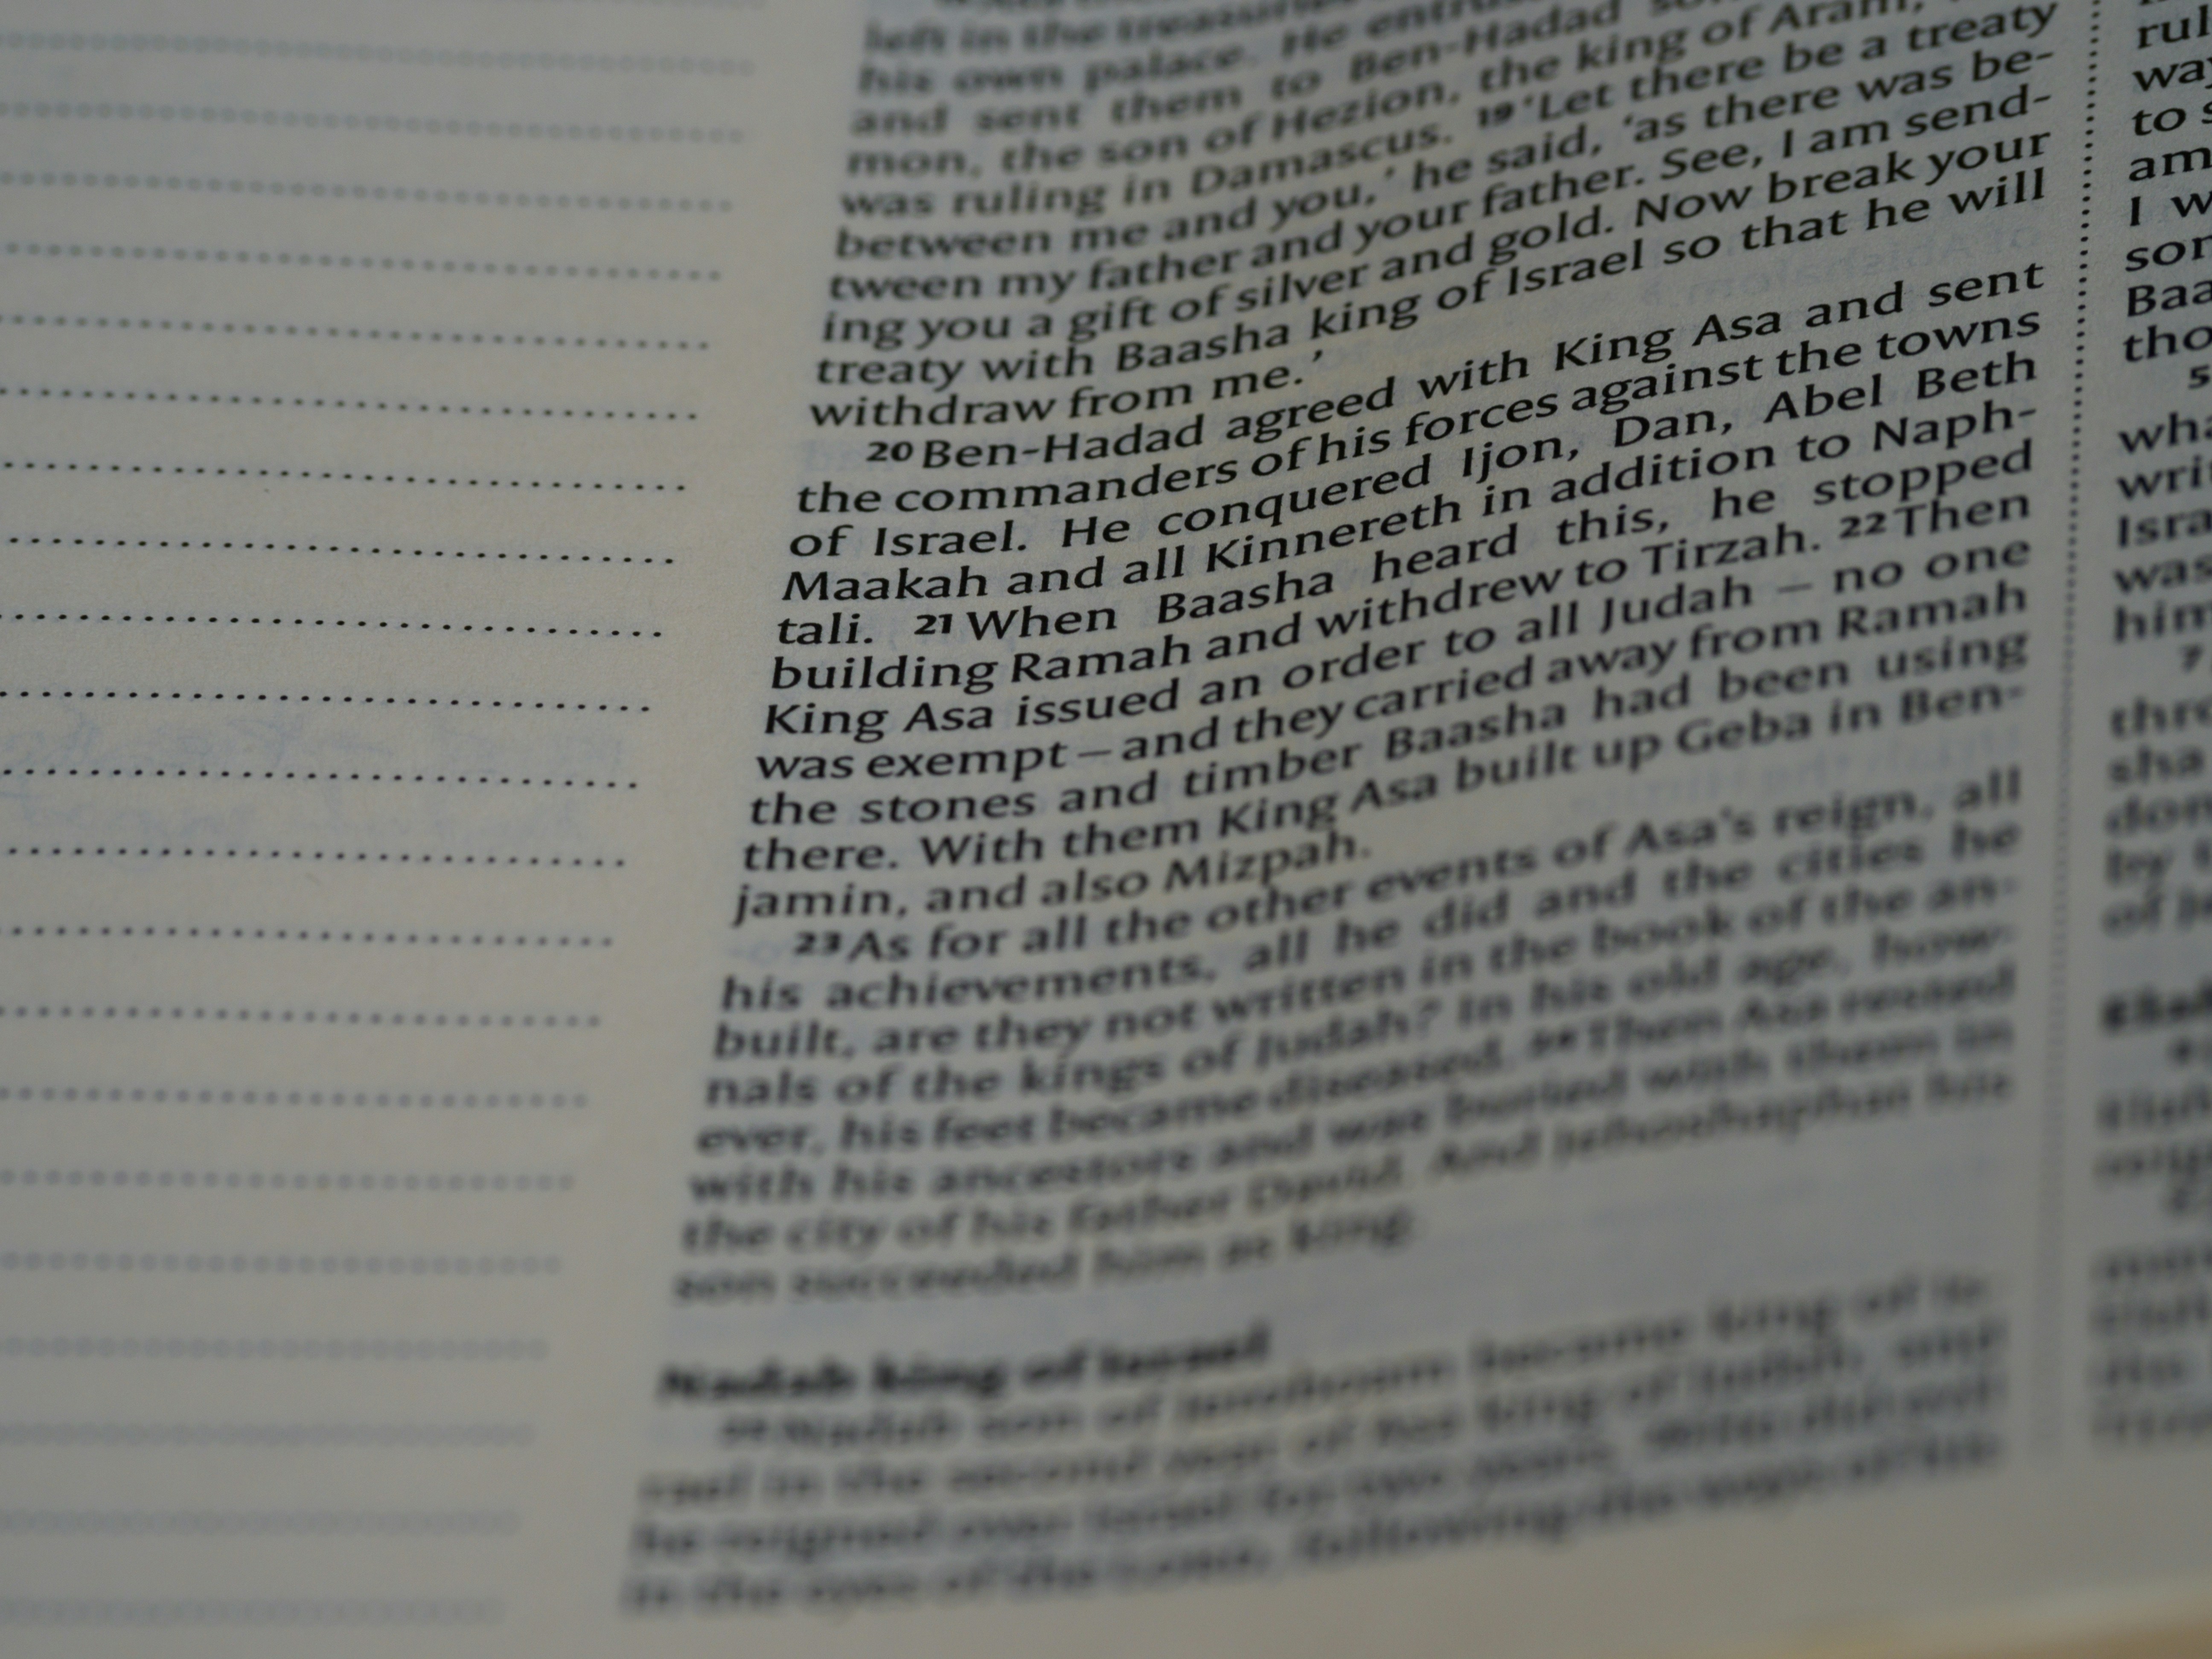 left in the treasuries
his own palace. He entrus
and sent them to Ben-Hadad
mon, the son of Hezion, the king of Aram,
was ruling in Damascus. 19 ‘Let there be a treaty
between me and you,’ he said, ‘as there was be-
tween my father and your father. See, I am send-
ing you a gift of silver and gold. Now break your
treaty with Baasha king of Israel so that he will
withdraw from me.’
20 Ben-Hadad agreed with King Asa and sent
the commanders of his forces against the towns
of Israel. He conquered Ijon, Dan, Abel Beth
Maakah and all Kinnereth in addition to Naph-
tali. 21 When Baasha heard this, he stopped
building Ramah and withdrew to Tirzah. 22 Then
King Asa issued an order to all Judah – no one
was exempt – and they carried away from Ramah
the stones and timber Baasha had been using
there. With them King Asa built up Geba in Ben-
jamin, and also Mizpah.
23 As for all the other events of Asa's reign, all
his achievements, all he did and the cities he
built, are they not written in the book of the an-
nals of the kings of Judah? In his old age, how-
ever, his feet became diseased. 24 Then Asa rested
with his ancestors and was buried with them in
the city of his father David. And Jehoshaphat his
son succeeded him as king.
Nadab king of Israel
25 Nadab son of Jeroboam became king of Is-
rael in the second year of Asa king of Judah, and
he reigned over Israel for two years.
in the eyes of the LORD, following the ways of his
rul
way
to s
am
I w
son
Baa
tho
5
wha
writ
Isra
was
him
7
thro
sha
don
by t
of J